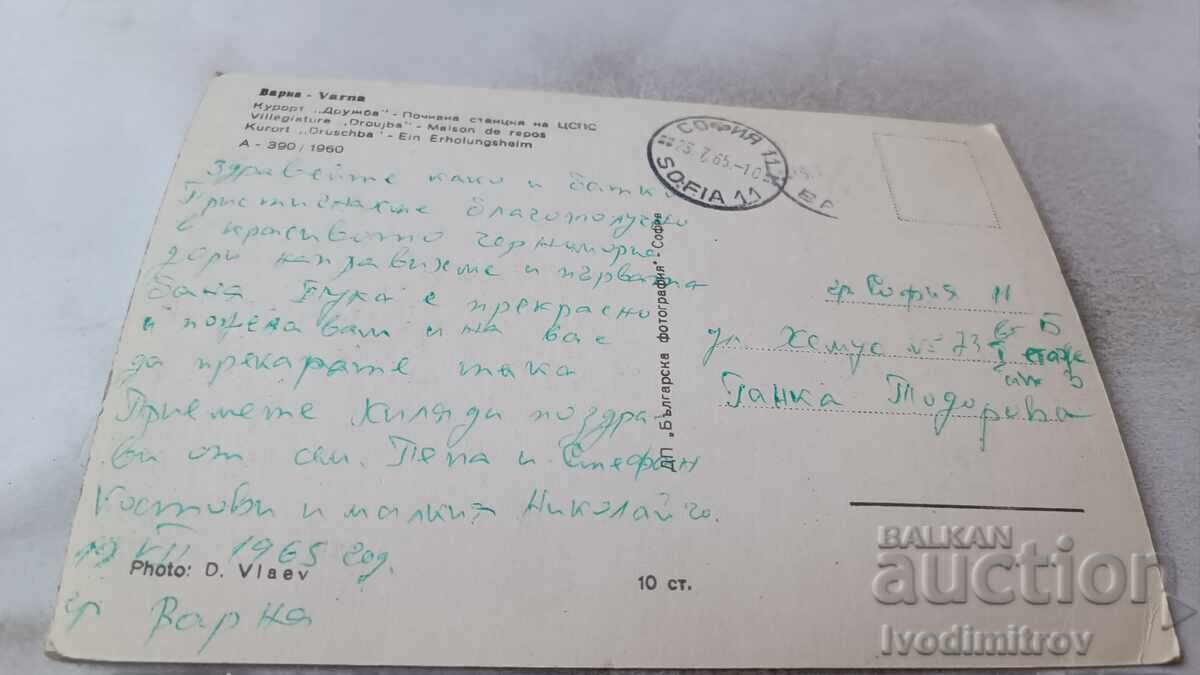 Варна - Varna
Курорт „Дружба" - Почивна станция на ЦСПС
Villegiature „Droujba" - Maison de repos
Kurort „Druschba" - Ein Erholungsheim
A - 390 / 1960
Здравейте како и батко
Пристигнахме благополучно
в красивото черноморие
дори направихме и първата
баня. Тука е прекрасно
и пожелавам и на вас
да прекарате така
Приемете хиляди поздра
ви от сем. Пепа и Стефан
Костови и малкия Николайчо.
19 VII 1965 год.
гр Варна
Photo: D. Vlaev
10 ст.
ДП „Българска фотография" - София
СОФИЯ 11
25.7.65.-10
SOFIA 11
гр София 11
ул Хемус № 73 вх Б
I етаж
ап 5
Ганка Тодорова
BALKAN
auction
Ivodimitrov